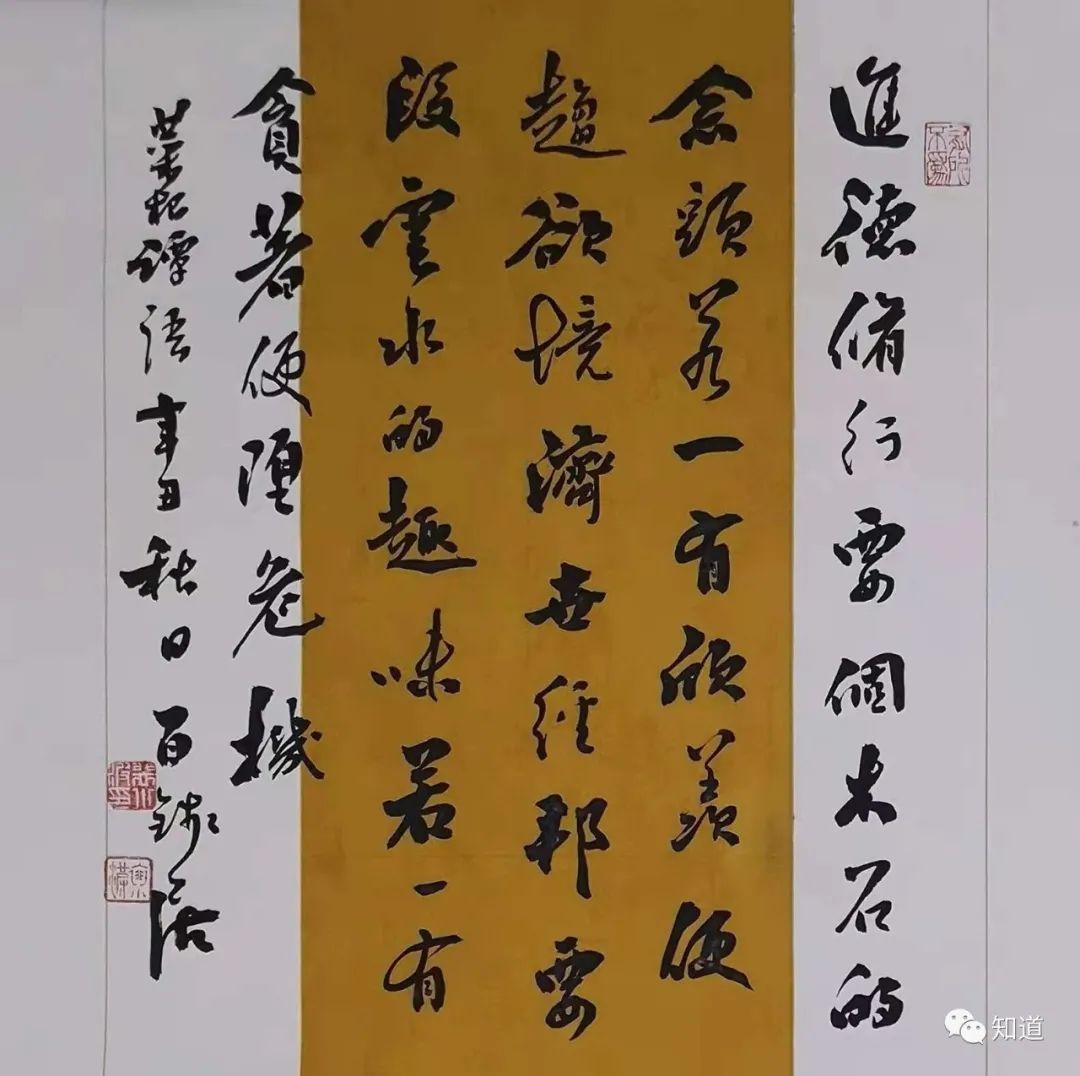 進德脩行要個木石的
念頭若一有欣羨便
趨欲境濟世經邦要
段雲水的趣味若一有
貪著便墮危機
菜根譚語辛丑秋日百
知道